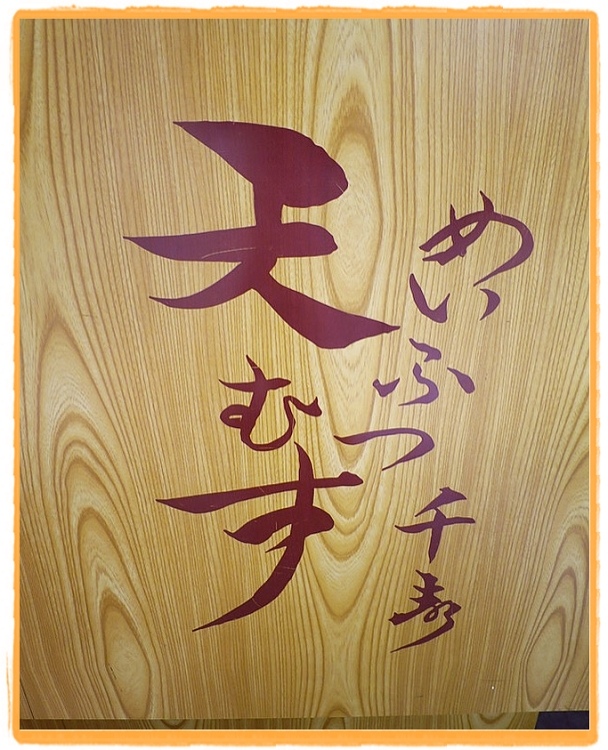 めいふつ千寿
天むす